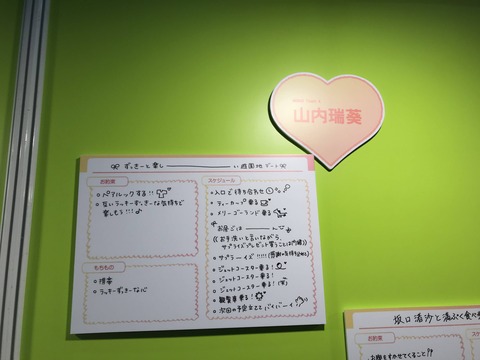 山内瑞葵
ずっきーと楽し————い遊園地デート
お約束
ペアルックする!!
互いラッキーずっきーな気持ちで
楽しもう!!!♪
もちもの
携帯
ラッキーずっきーな心
スケジュール
入口で待ち合わせ
ティーカップ乗る
メリーゴーランド乗る
お昼ごはーーーん
サプラーーイズ!!!!
ジェットコースター乗る!
ジェットコースター乗る!
ジェットコースター乗る!(笑)
観覧車乗る!
次回の予定たててバイバーイ
坂口渚沙と満ぷく食べ
お約束
お腹をすかせてくること!?
スケ